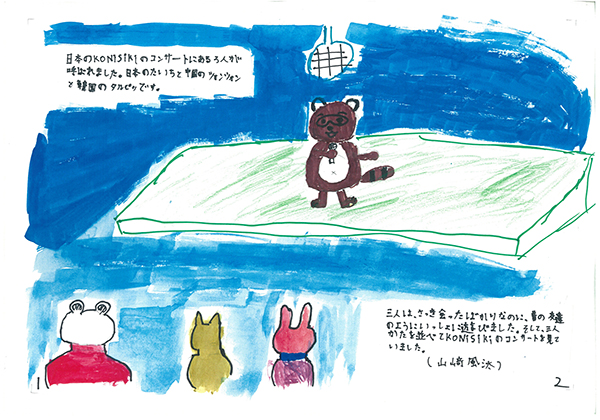 日本のKONISIKIのコンサートにある3人が
呼ばれました。日本のたいちと中国のシンシン
と韓国のタルピッです。
三人は、さっき会ったばかりなのに、昔の友達
のようにいっしょに遊びました。そして、三人
かたを並べてKONISIKIのコンサートを見て
いました。
(山崎風氷)
1
2